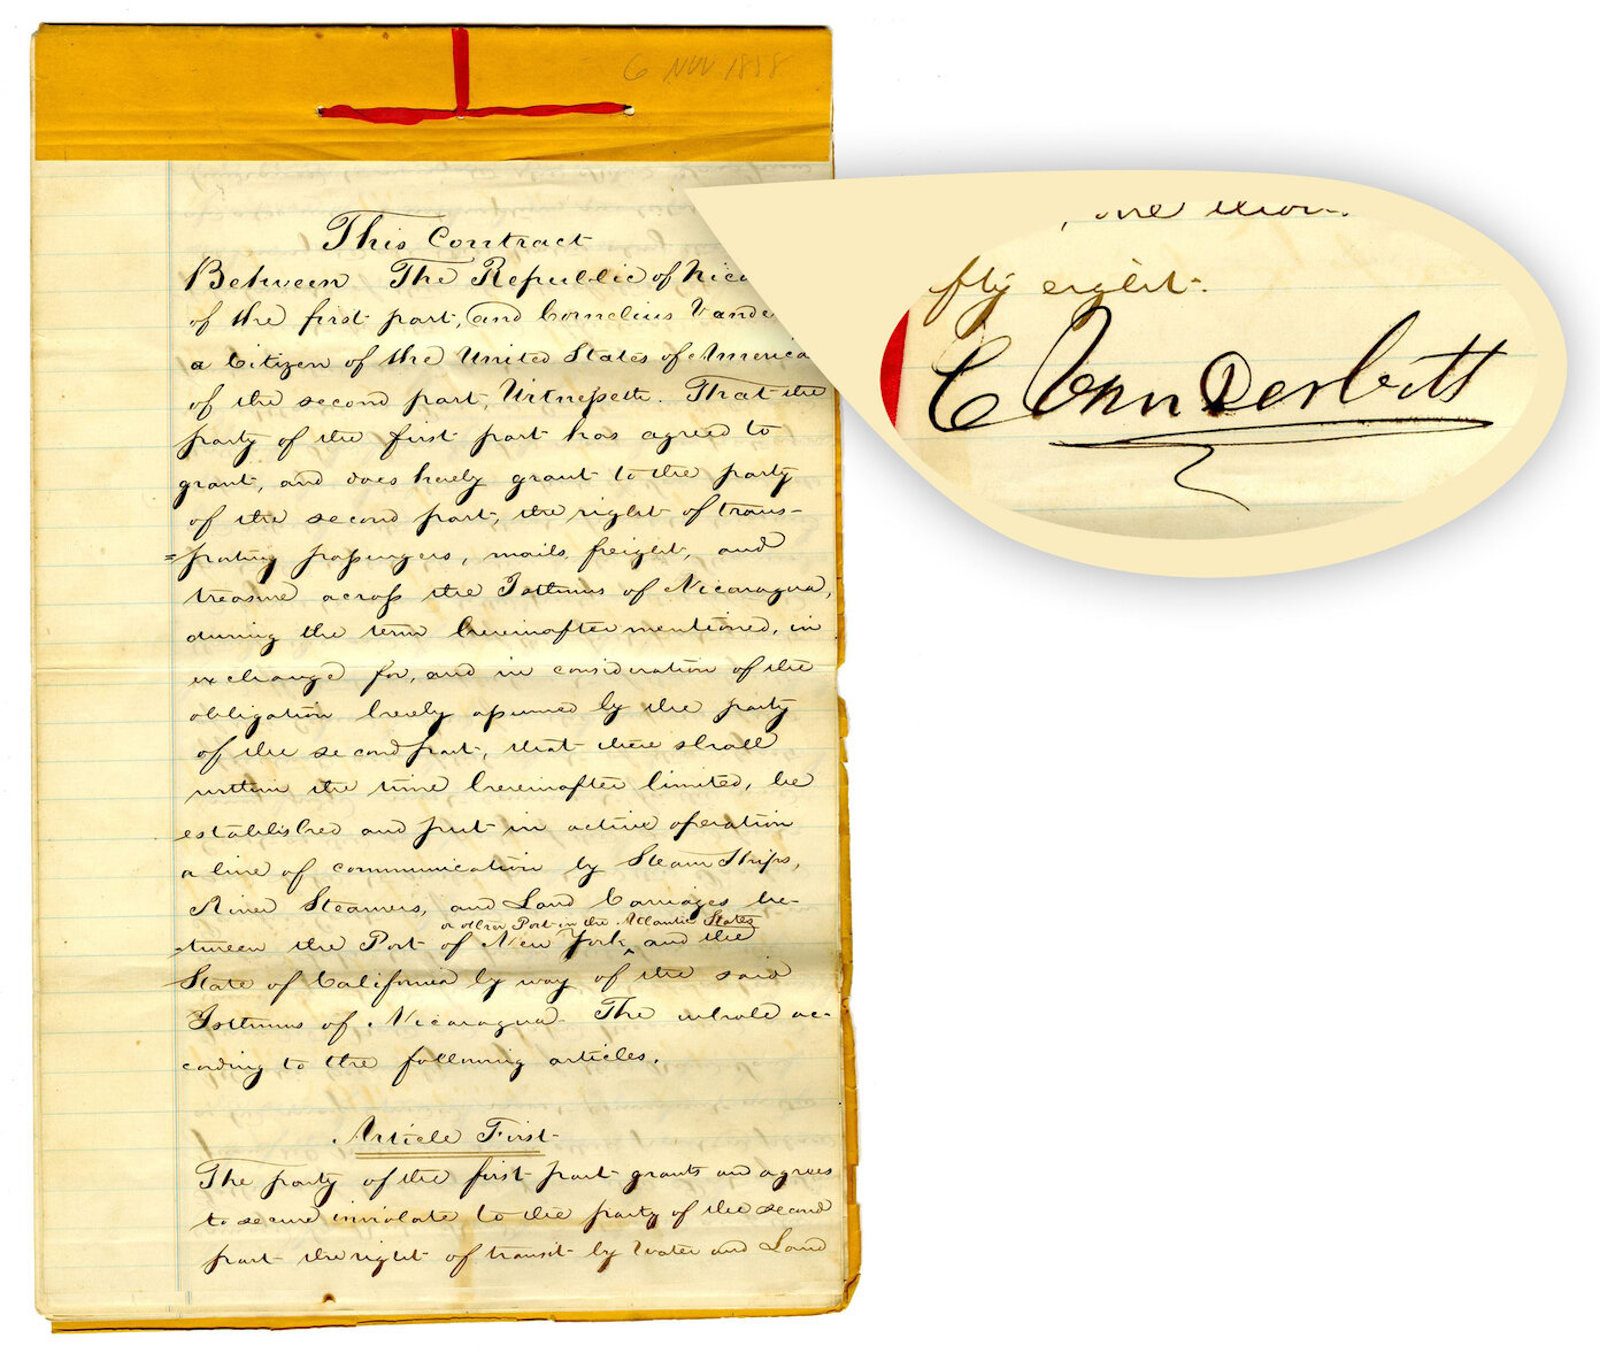 6 Nov 1858
This Contract
Between The Republic of Nica
of the first part, and Cornelius Vande
a Citizen of the United States of America
of the second part, Witnesseth. That the
party of the first part has agreed to
grant, and does hereby grant to the party
of the second part, the right of trans-
=porting passengers, mails, freight, and
treasure across the Isthmus of Nicaragua,
during the term hereinafter mentioned, in
exchange for, and in consideration of the
obligation hereby assumed by the party
of the second part, that there shall
within the time hereinafter limited, be
established and put in active operation
a line of communication by Steam Ships,
River Steamers, and Land Carriages be-
or other Port in the Atlantic States
-tween the Port of New York ^ and the
State of California by way of the said
Isthmus of Nicaragua. The whole ac-
cording to the following articles.
Article First
The party of the first part grants and agrees
to secure inviolate to the party of the second
part the right of transit by Water and Land
fty eight.
C Vanderbilt